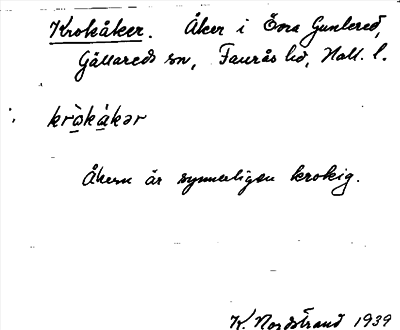 Krokåker. Åker i Övra Gunbered,
Gällareds sn, Faurås hd, Hall. l.
kròkákər
Åkern är synnerligen krokig.
K. Nordstrand 1939